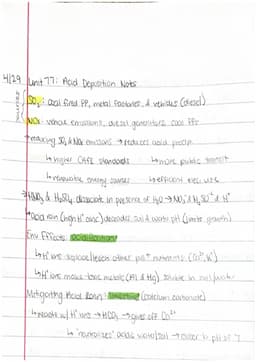 4/29 Unit 77: Acid Deposition Notes
SO₂: coal fired PP, metal factories, & vehicles (diesel)
NOx: vehicle emissions, diesel generators, coal PPs
reducing SO₂ & NOx emissions → reduces acid precip.
↳ higher CAFE standards ↳ more public transit
↳ renewable energy sources ↳ efficient elec. use
→ HNO₃ & H₂SO₄ dissociate in presence of H₂O → NO₃⁻ & SO₄²⁻ & H⁺
acid rain (high H⁺ conc) decreases soil & water pH (limits growth)
Env Effects: acidification
↳ H⁺ ions displace/leach other pos⁺ nutrients (Ca²⁺, K⁺)
↳ H⁺ ions make toxic metals (Al & Hg) soluble in soil/water
Mitigating Acid Rain: limestone (calcium carbonate)
↳ reacts w/ H⁺ ions → HCO₃ → gives off Ca²⁺
↳ "neutralizes" acidic water/soil → closer to pH of 7